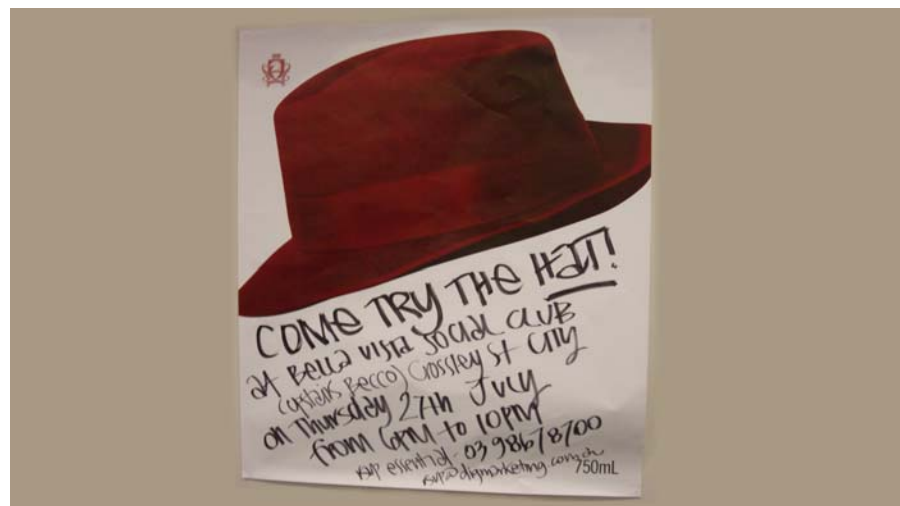 COME TRY THE HAT!
at Bella Vista Social Club
(upstairs Becco) Crossley St City
on Thursday 27th July
from 6PM to 10PM
RSVP essential. 03 9867 8700
750mL